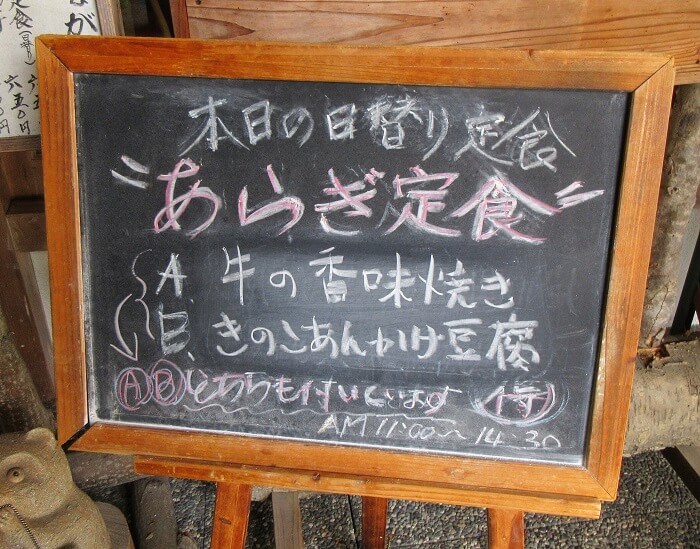 本日の日替り定食
〃あらぎ定食〃
A、牛の香味焼き
B、きのこあんかけ豆腐
ⒶⒷどちらも付いています
AM 11:00~14:30
定食(日替り) 六五〇円